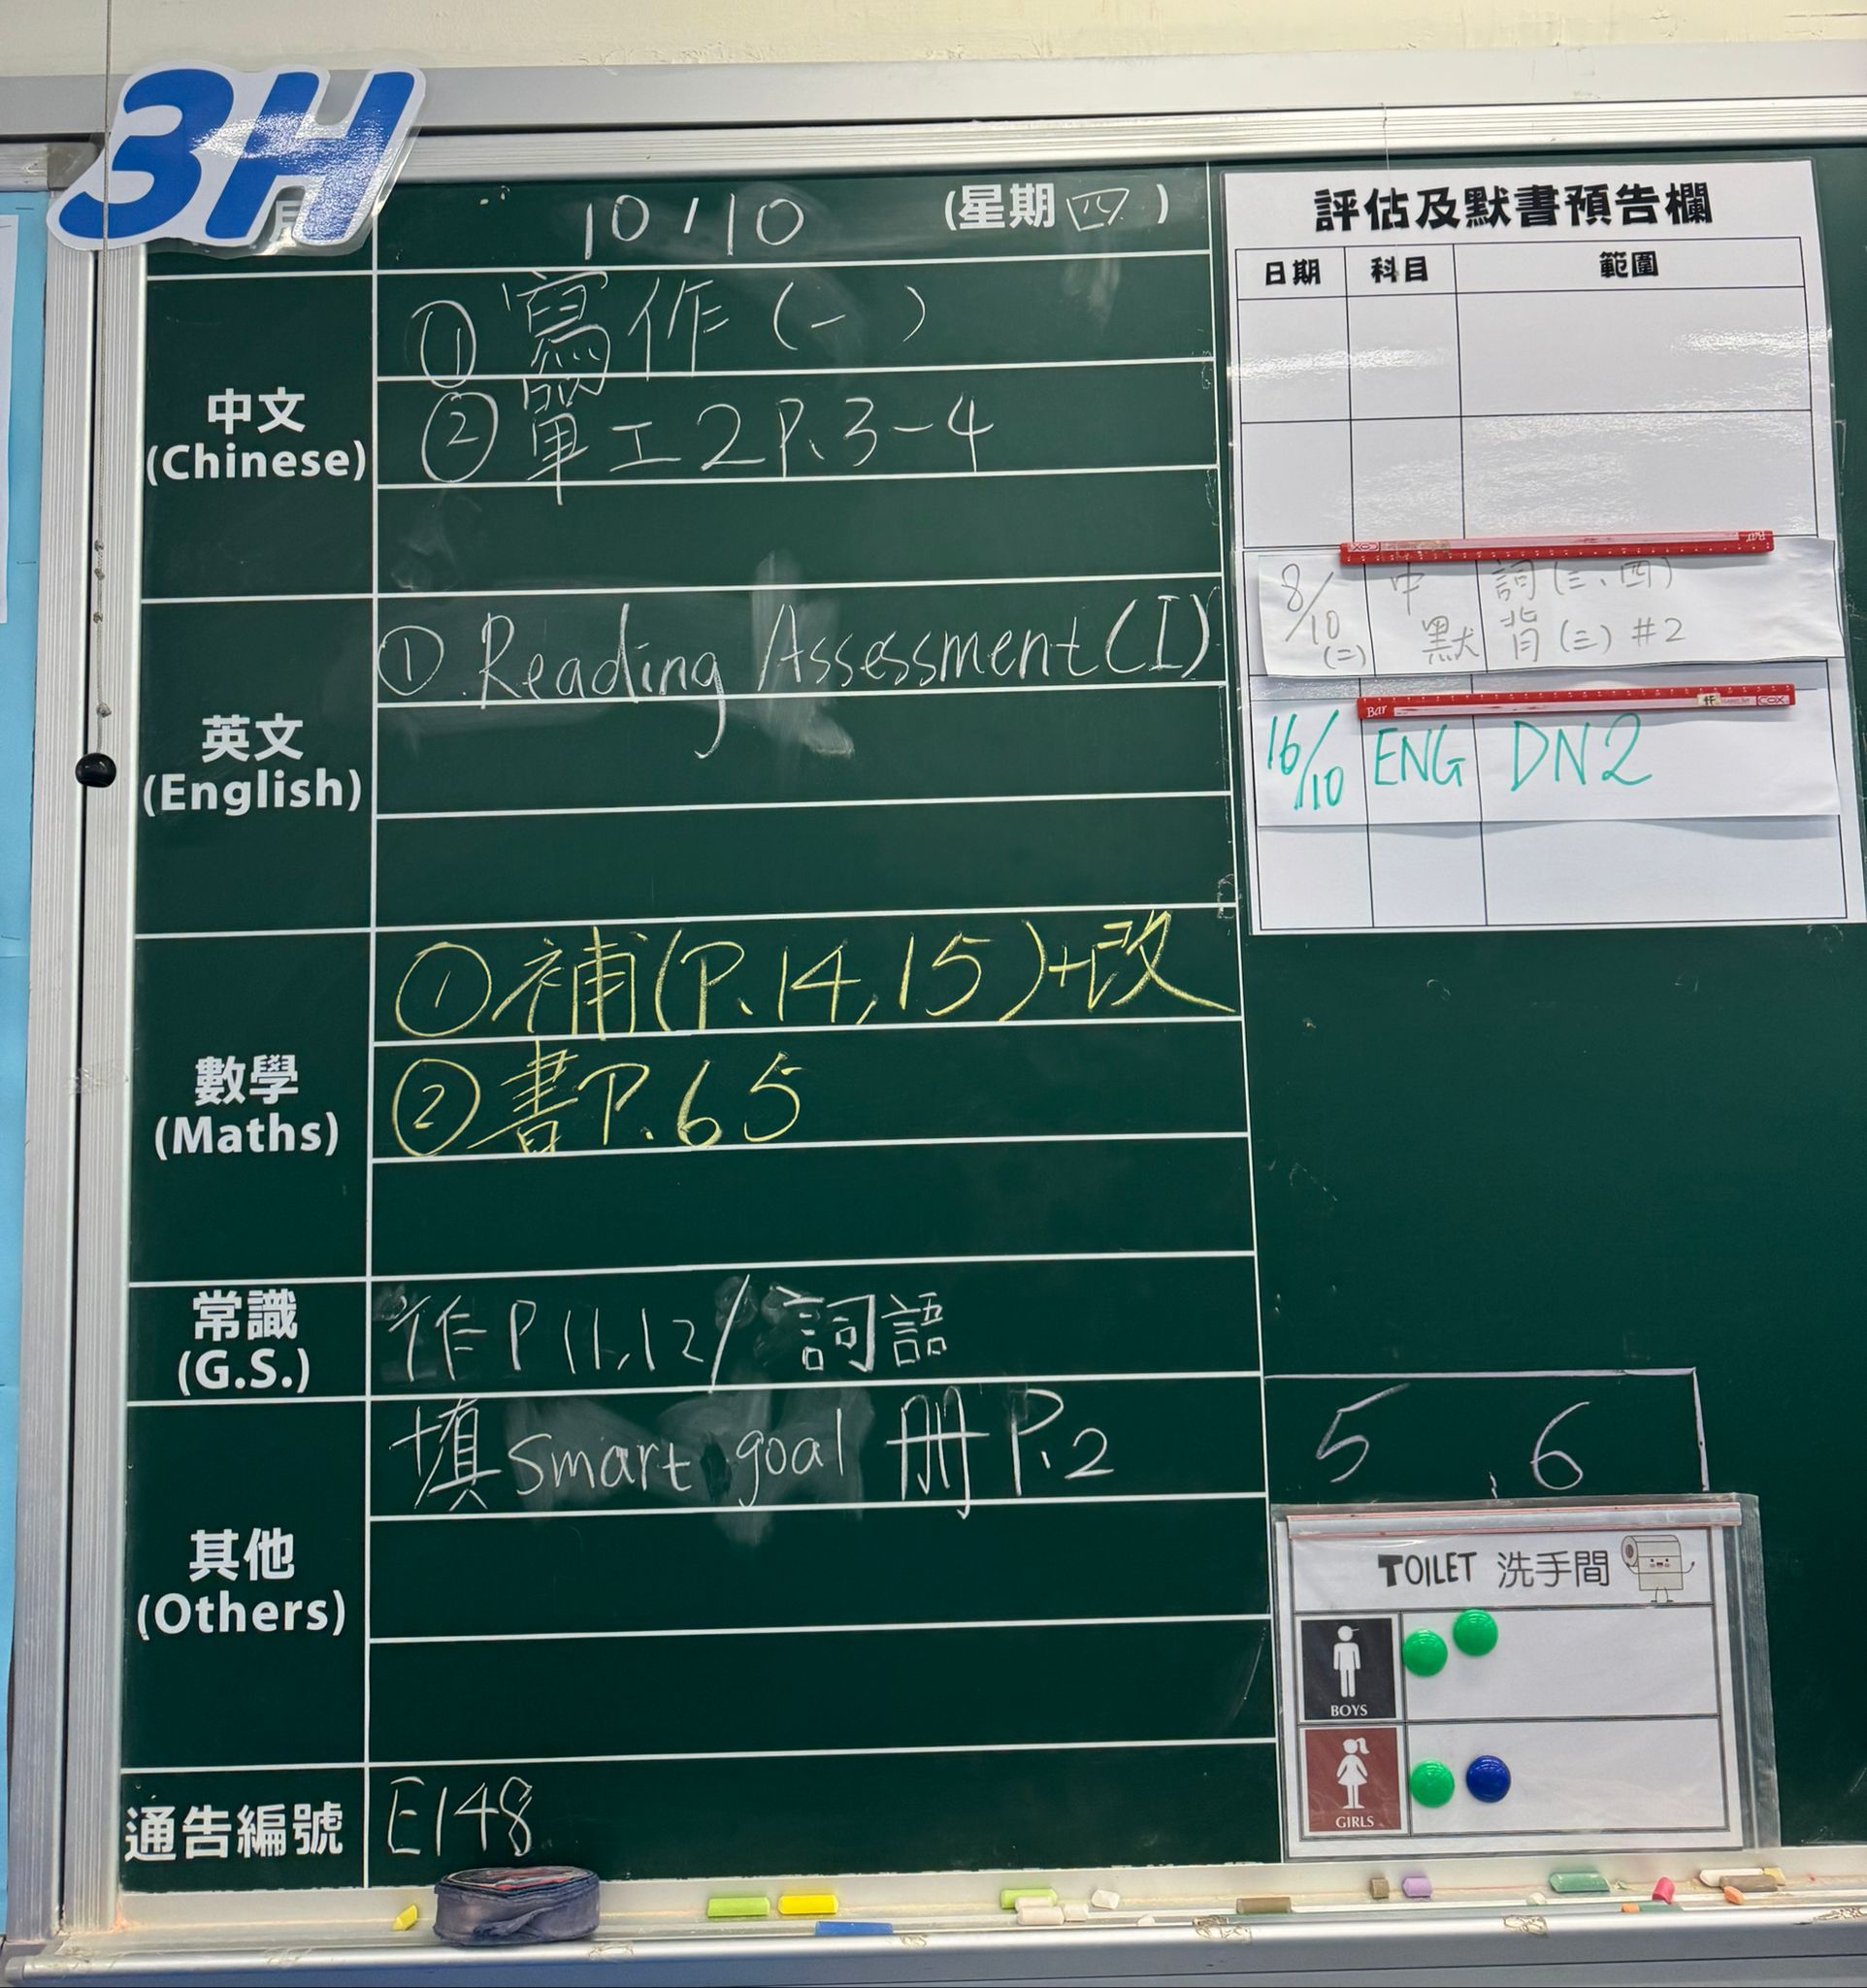 3H
月
10/10 (星期四)
中文
(Chinese)
① 寫作(一)
② 單工2P.3-4
英文
(English)
① Reading Assessment(I)
數學
(Maths)
① 補(P.14,15)+改
② 書P.65
常識
(G.S.)
作P11,12/詞語
其他
(Others)
填smart goal 冊P.2
通告編號
E148
評估及默書預告欄
日期 科目 範圍
8/10 (二) 中默 詞(三、四)
背(三)#2
16/10 ENG DN2
5 , 6
TOILET 洗手間
BOYS
GIRLS
Bar
COX